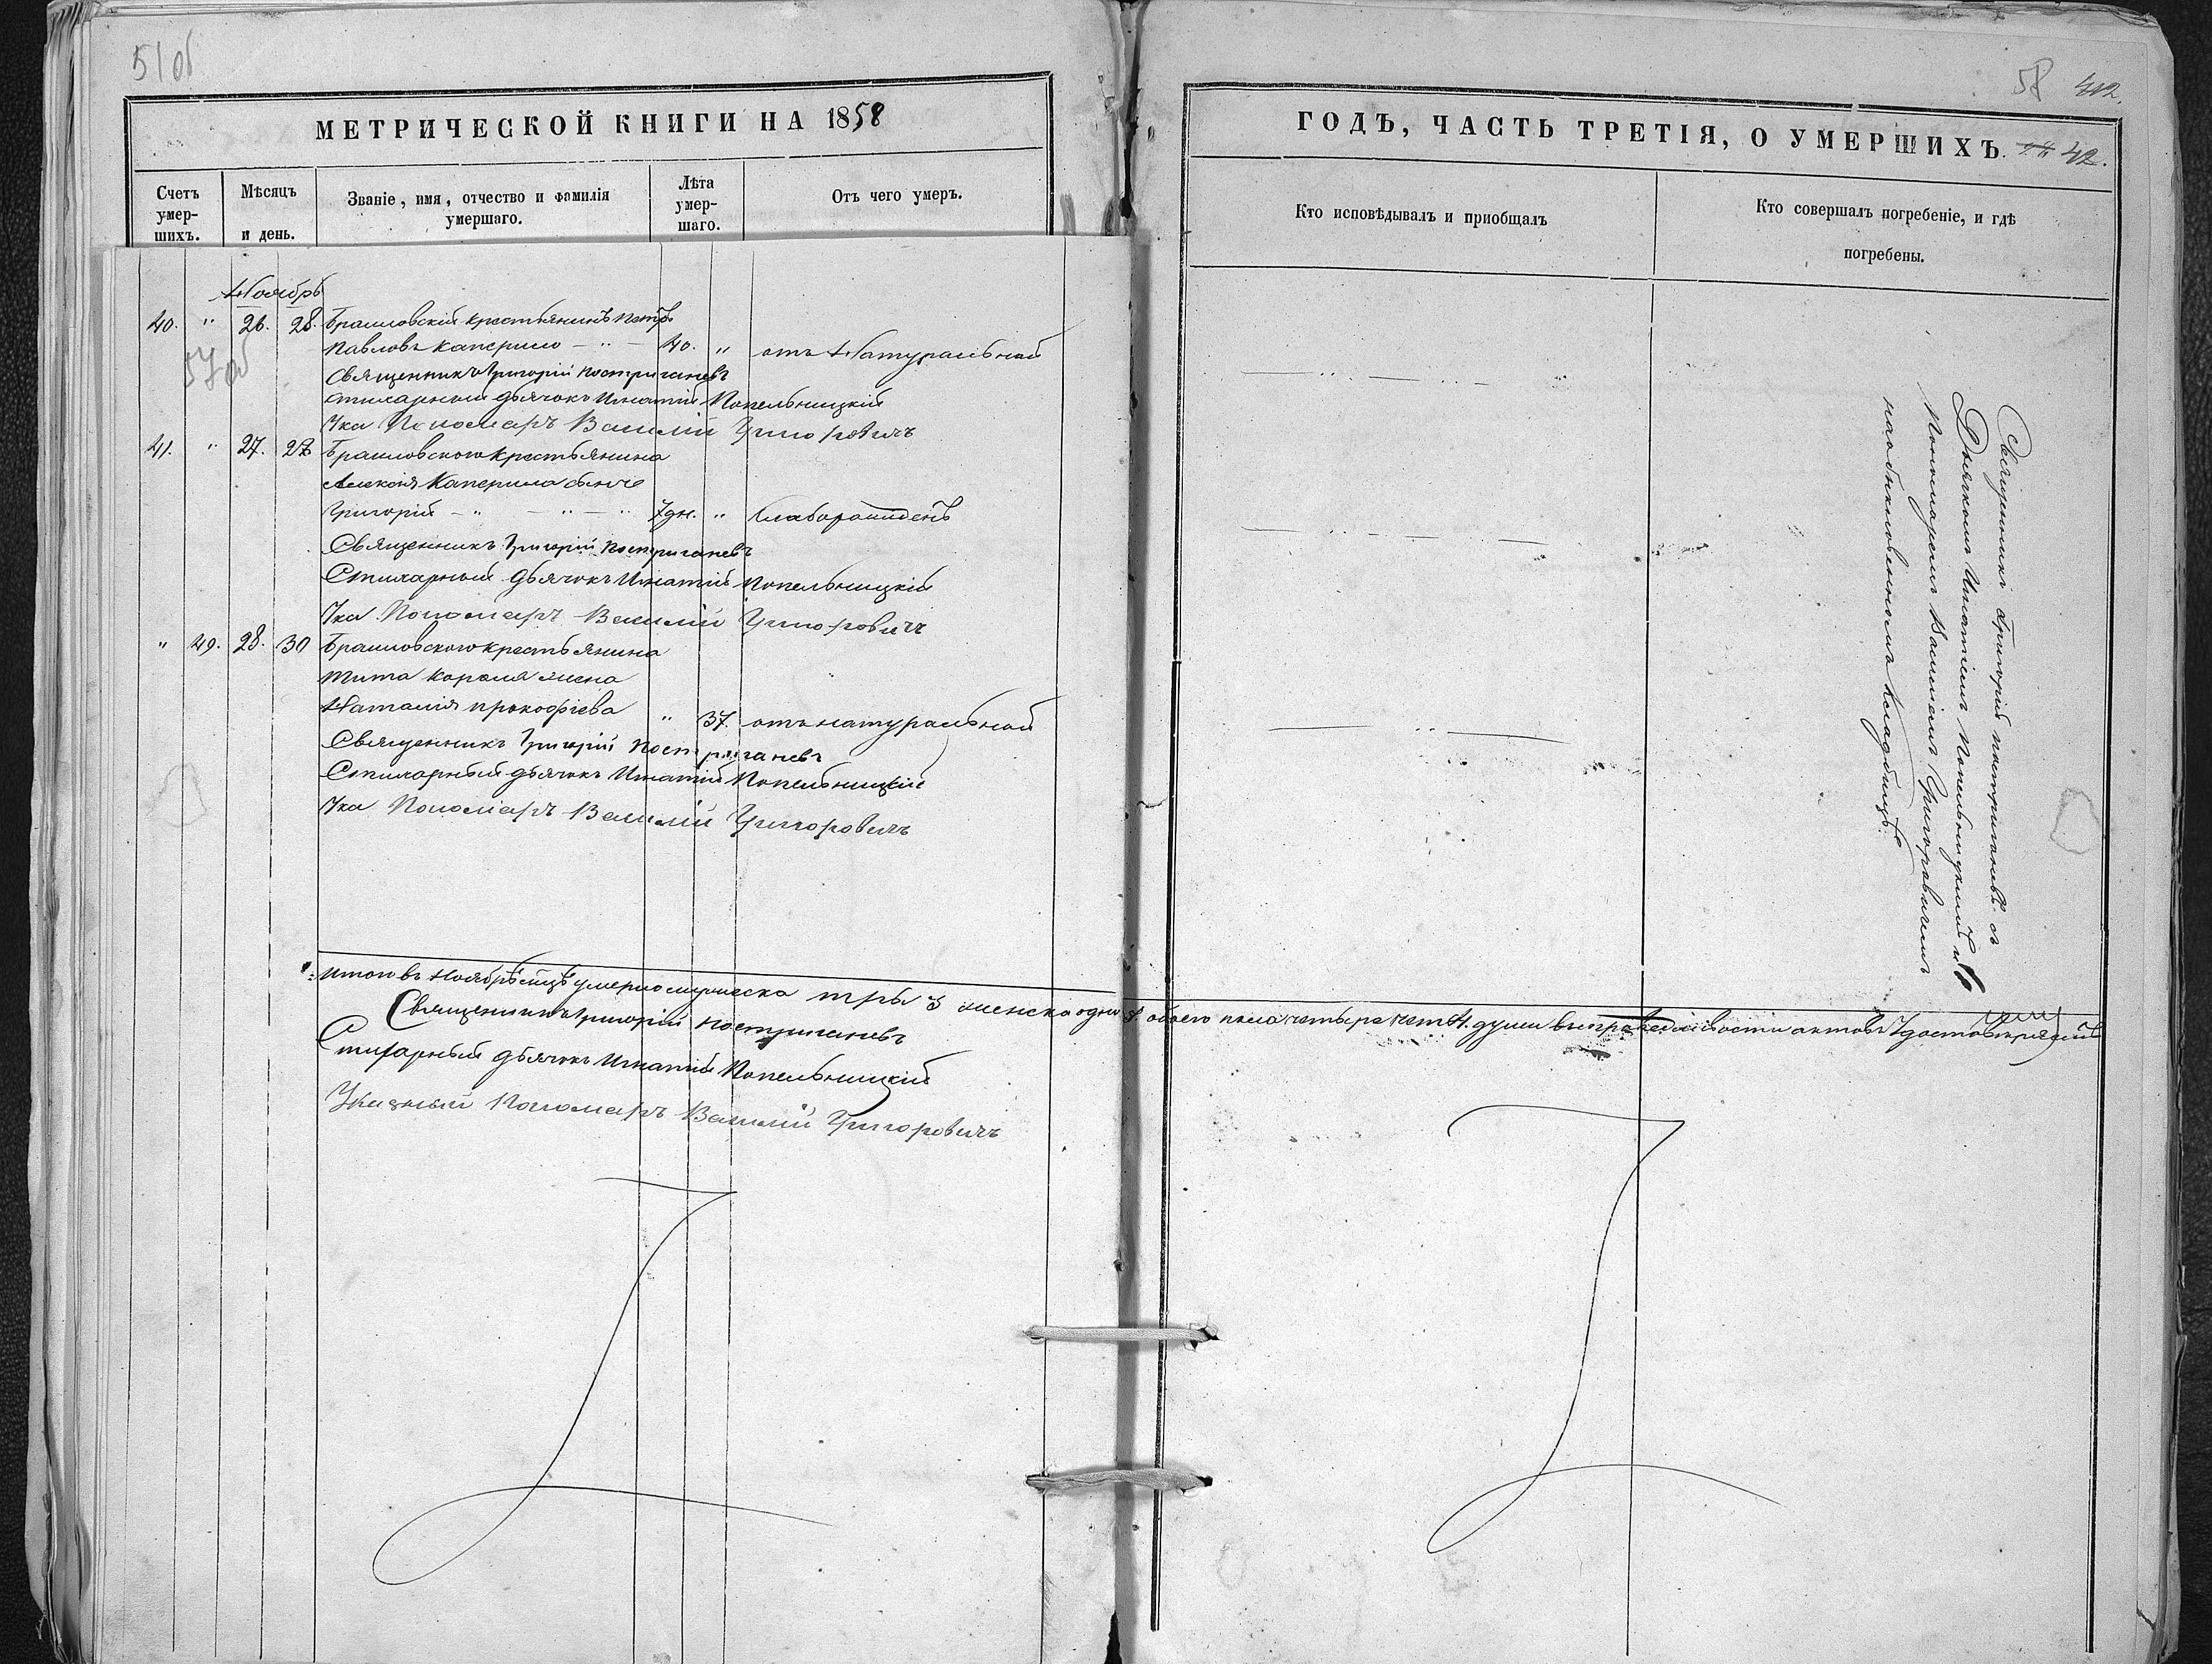 51об
МЕТРИЧЕСКОЙ КНИГИ НА 1858
Счетъ умер-
шихъ.
Мѣсяцъ
и день.
Званіе, имя, отчество и фамилія
умершаго.
Лѣта
умер-
шаго.
Отъ чего умеръ.
Ноябрь
40. " 26. 28. Браиловскій крестьянинъ Петръ
Павловъ Каперило - " - 40. " отъ Натуральной
57об
Священникъ Григорій Постригачевъ
Стихарный дьячокъ Игнатій Попельницкій
Ука Пономаръ Василій Григоровичъ
41. " 27. 28 Браиловского крестьянина
Алексія Каперила сынъ
Григорій - " - " - " 7дн. " слаборожденъ
Священникъ Григорій Постригачевъ
Стихарный дьячокъ Игнатій Попельницкій
Ука Пономаръ Василій Григоровичъ
" 49. 28. 30 Браиловского крестьянина
Тита Короля жена
Наталія Прокофіева " 37. отъ натуральной
Священникъ Григорій Постригачевъ
Стихарный дьячокъ Игнатій Попельницкій
Ука Пономаръ Василій Григоровичъ
Итого въ Ноябрѣ мцѣ умерло мужеска три 3 женска одна 1. обоего пола четыре 4. души въ справедливости актовъ удостовѣряемъ
Священникъ Григорій Постригачевъ
Стихарный дьячокъ Игнатій Попельницкій
Указный Пономаръ Василій Григоровичъ
58 412.
ГОДЪ, ЧАСТЬ ТРЕТІЯ, О УМЕРШИХЪ. 42.
Кто исповѣдывалъ и пріобщалъ
Кто совершалъ погребеніе, и гдѣ
погребены.
Священникъ Григорій Постригачевъ съ
Дьячкомъ Игнатіемъ Попельницкимъ и
Пономаремъ Василіемъ Григоровичемъ
на обыкновенномъ кладбищѣ.